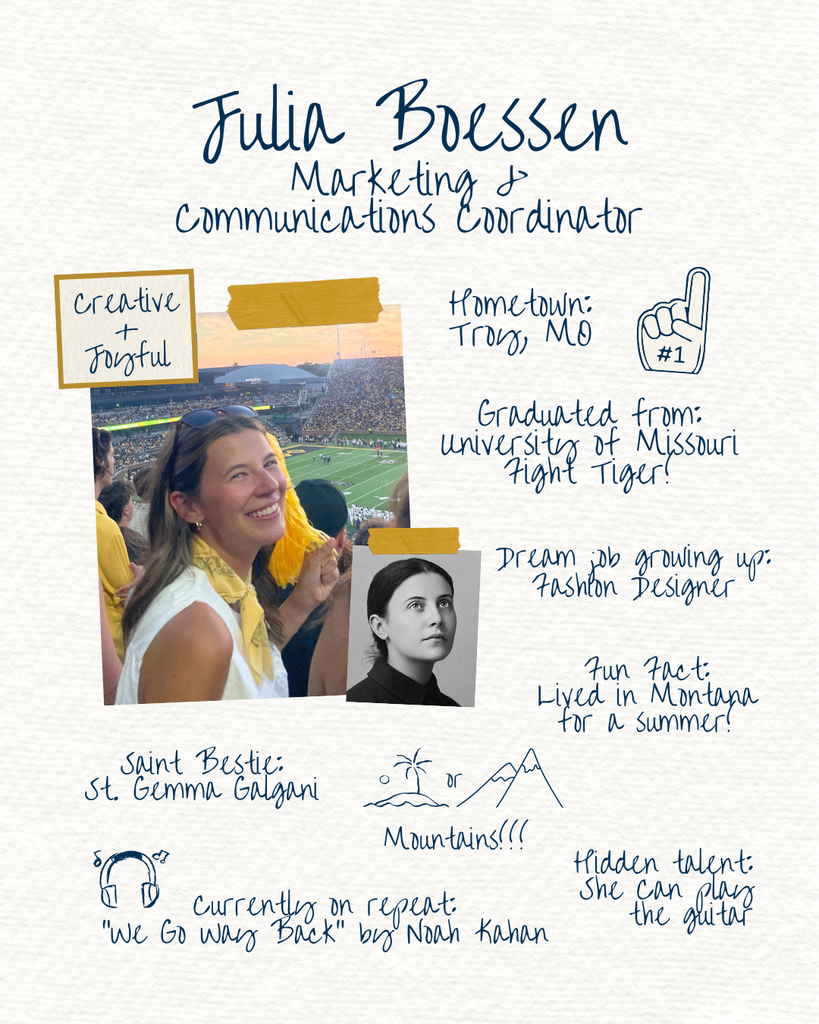 Julia Boessen
Marketing &
Communications Coordinator
Creative
+
Joyful
Hometown:
Troy, MO
#1
Graduated from:
University of Missouri
Fight Tiger!
Dream job growing up:
Fashion Designer
Fun Fact:
Lived in Montana
for a summer!
Saint Bestie:
St. Gemma Galgani
or
Mountains!!!
Hidden talent:
She can play
the guitar
Currently on repeat:
"We Go Way Back" by Noah Kahan